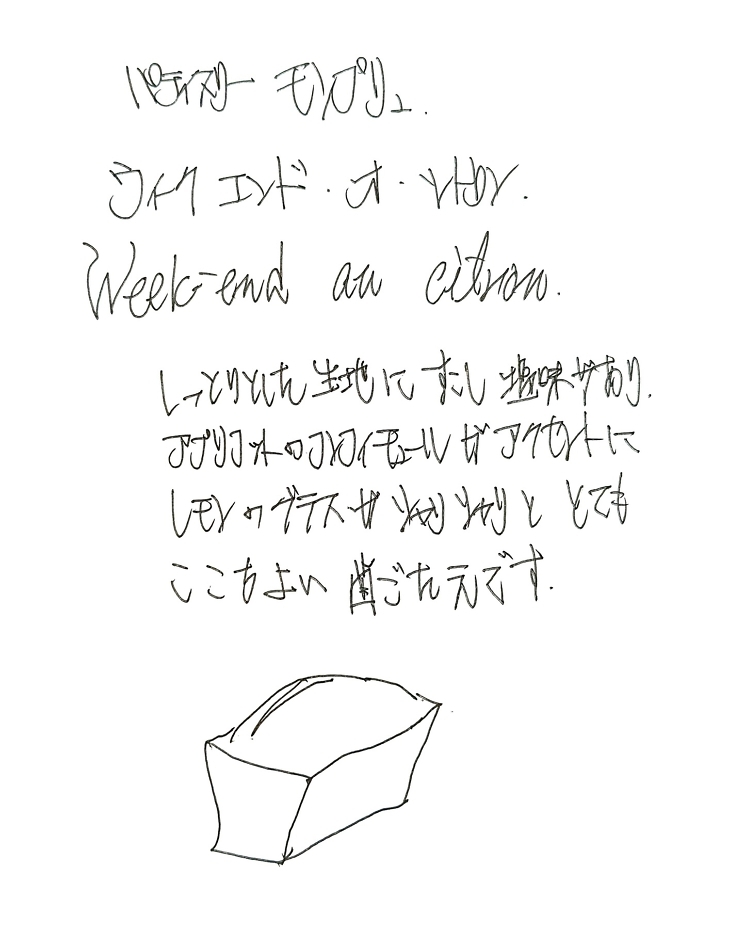 パティスリー モンプリュ.
ウィークエンド・オ・シトロン.
Week-end au citron.
しっとりとした生地にすこし塩味があり.
アプリコットのコンフィチュールがアクセントに
レモンのグラスがシャリシャリととても
ここちよい歯ごたえです.